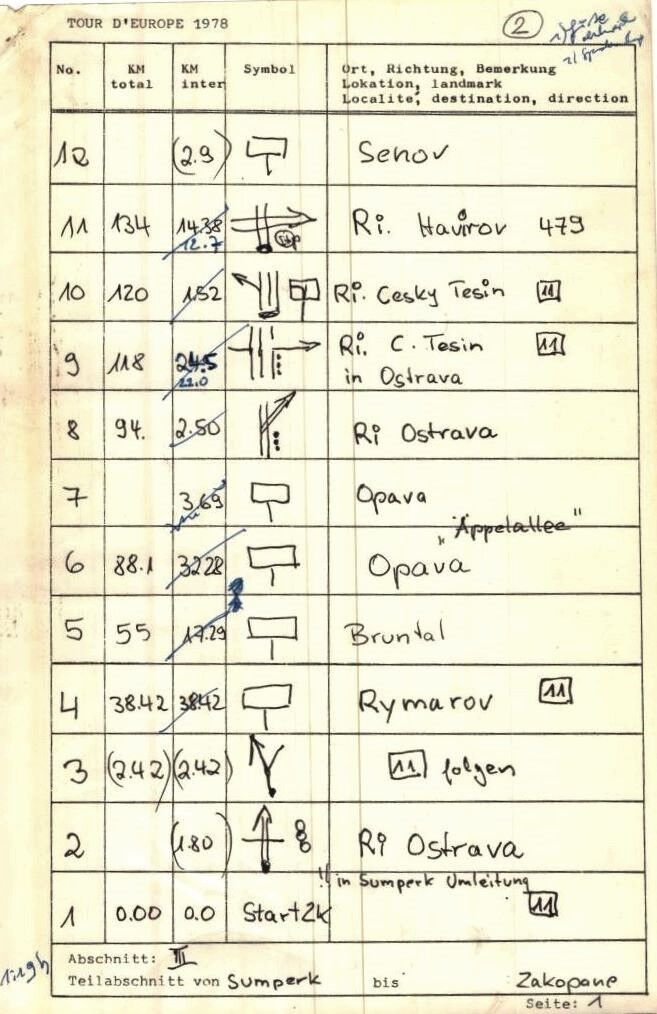 TOUR D'EUROPE 1978
2
No. KM total KM inter Symbol Ort, Richtung, Bemerkung
Lokation, landmark
Localité, destination, direction
12 (2.9) Senov
11 134 14.38 12.7 Ri. Havířov 479
10 120 1.52 Ri. Cesky Tesin 11
9 118 24.5 22.0 Ri. C. Tesin 11
in Ostrava
8 94. 2.50 Ri Ostrava
7 3.69 Opava
"Äppelallee"
6 88.1 32.28 Opava
5 55 17.29 Bruntal
4 38.42 38.42 Rymarov 11
3 (2.42) (2.42) 11 folgen
2 (1.80) Ri Ostrava
!! in Sumperk Umleitung
1 0.00 0.0 Start ZK 11
Abschnitt: III
Teilabschnitt von Sumperk bis Zakopane
Seite: 1